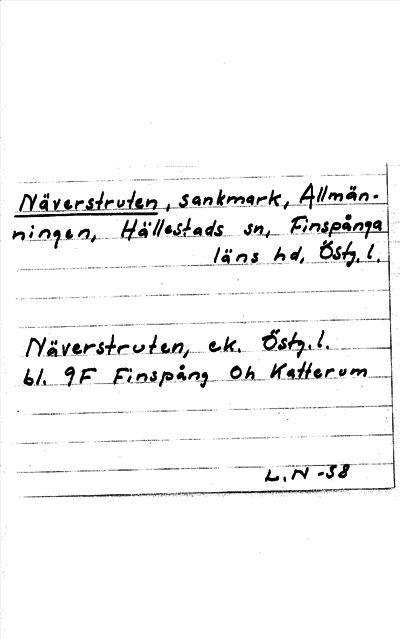 Näverstruten, sankmark, Allmän-
ningen, Hällestads sn, Finspånga
läns hd, Östg. l.
Näverstruten, ek. Östg. l.
bl. 9F Finspång 0h Katterum
L. N -58